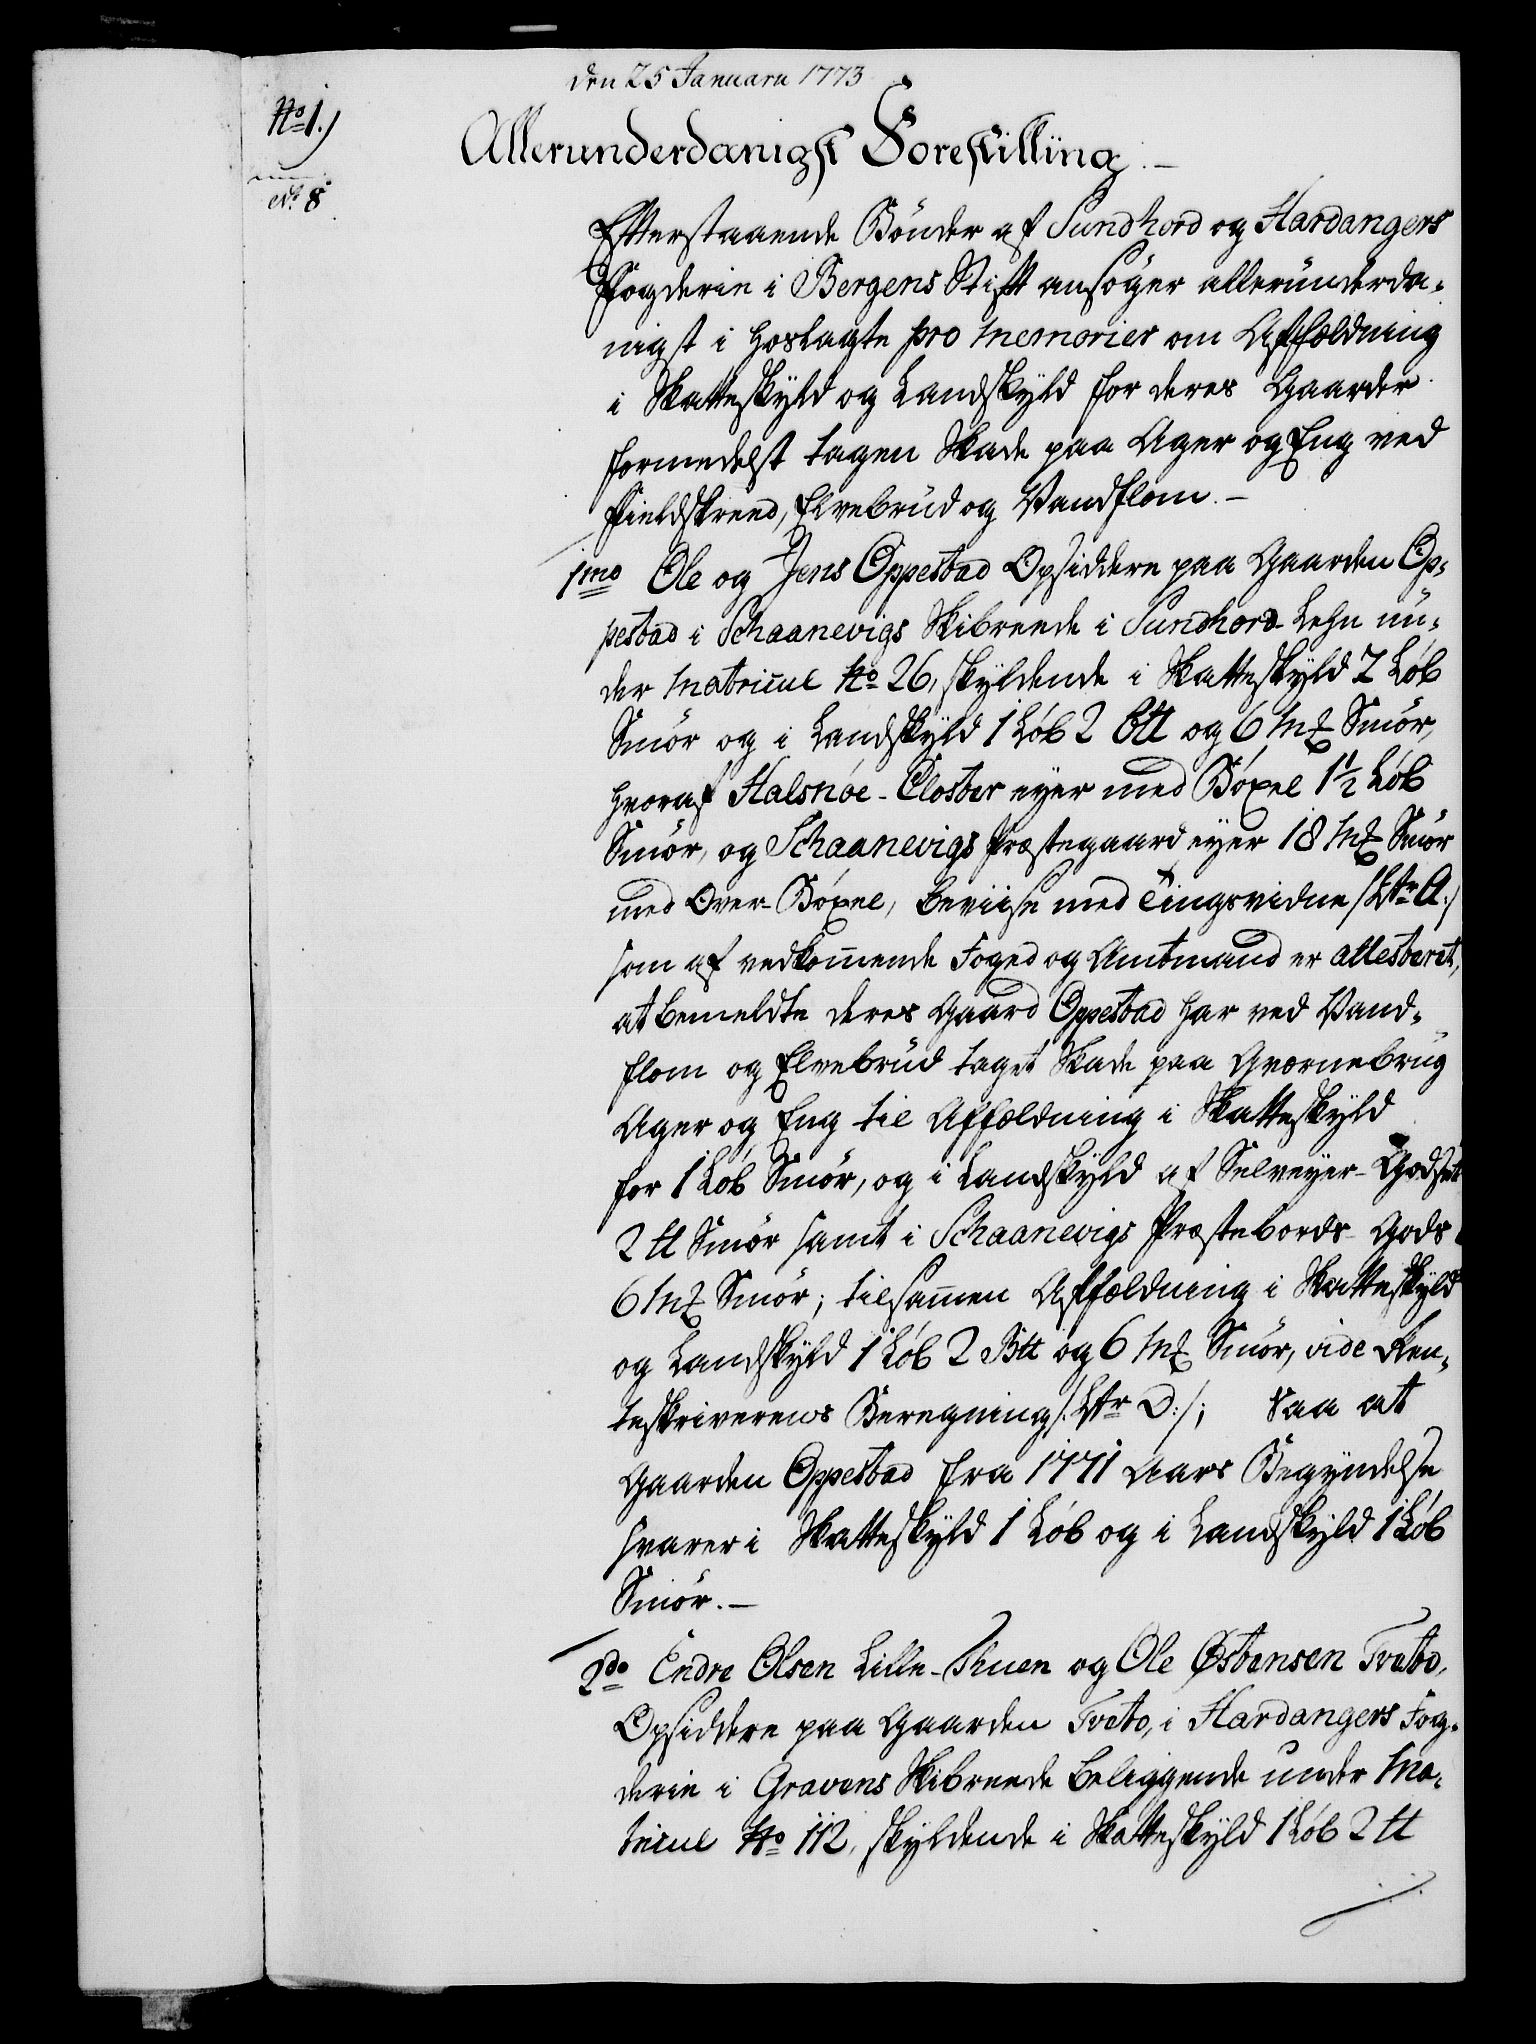 den 25 Januarii 1773
No 1.)
Allerunderdanigst Forestilling.—
No 8
Efterstaaende Bönder af Sundhord og Hardangers
Fogderie i Bergens Stift ansöger alleründerda-
nigst i hoslagte pro memorier om Affældning
i Skatteskyld og Landskyld for deres Gaarder
formedelst tagen Skade paa Ager og Eng ved
Fieldskreed, Elvebrud og Vandflom.—
1mo Ole og Jens Oppestad Opsiddere paa Gaarden Op-
pestad i Schaanevigs Skibreede i Sundhord-Lehn ün-
der Matricul No 26, skyldende i Skatteskyld 2 Løb
Smør og i Landskyld 1 Løb 2 B℔ og 6 mk Smør,
hvoraf Halsnöe-Closter eyer med Böxel 1½ Løb
Smør, og Schaanevigs Præstegaard eyer 18 mk Smør
med Over-Böxel, beviise med Tingsvidne /:Ltr A:/
som af vedkom̅ende Foged og Amtmand er attesteret,
at bemeldte deres Gaard Oppestad har ved Vand-
flom og Elvebrud taget Skade paa Qværnebrug
Ager og Eng til Affældning i Skatteskyld
for 1 Løb Smør, og i Landskyld af Selveyer-Godset
2 ℔ Smør samt i Schaanevigs Præstebords-Gods
6 mk Smør; tilsam̅en Affældning i Skatteskyld
og Landskyld 1 Løb 2 B℔ og 6 mk Smør, vide Ren-
teskriverens Beregning /:Ltr D:/; saa at
Gaarden Oppestad fra 1771 Aars Begyndelse
svarer i Skatteskyld 1 Løb og i Landskyld 1 Løb
Smør.—
2do Endre Olsen Lille-Thuen og Ole Østensen Tveto,
Opsiddere paa Gaarden Tveto, i Hardangers Fog-
derie i Gravens Skibreede beliggende under Ma-
tricul No 112, skyldende i Skatteskyld 1 Løb 2 ℔